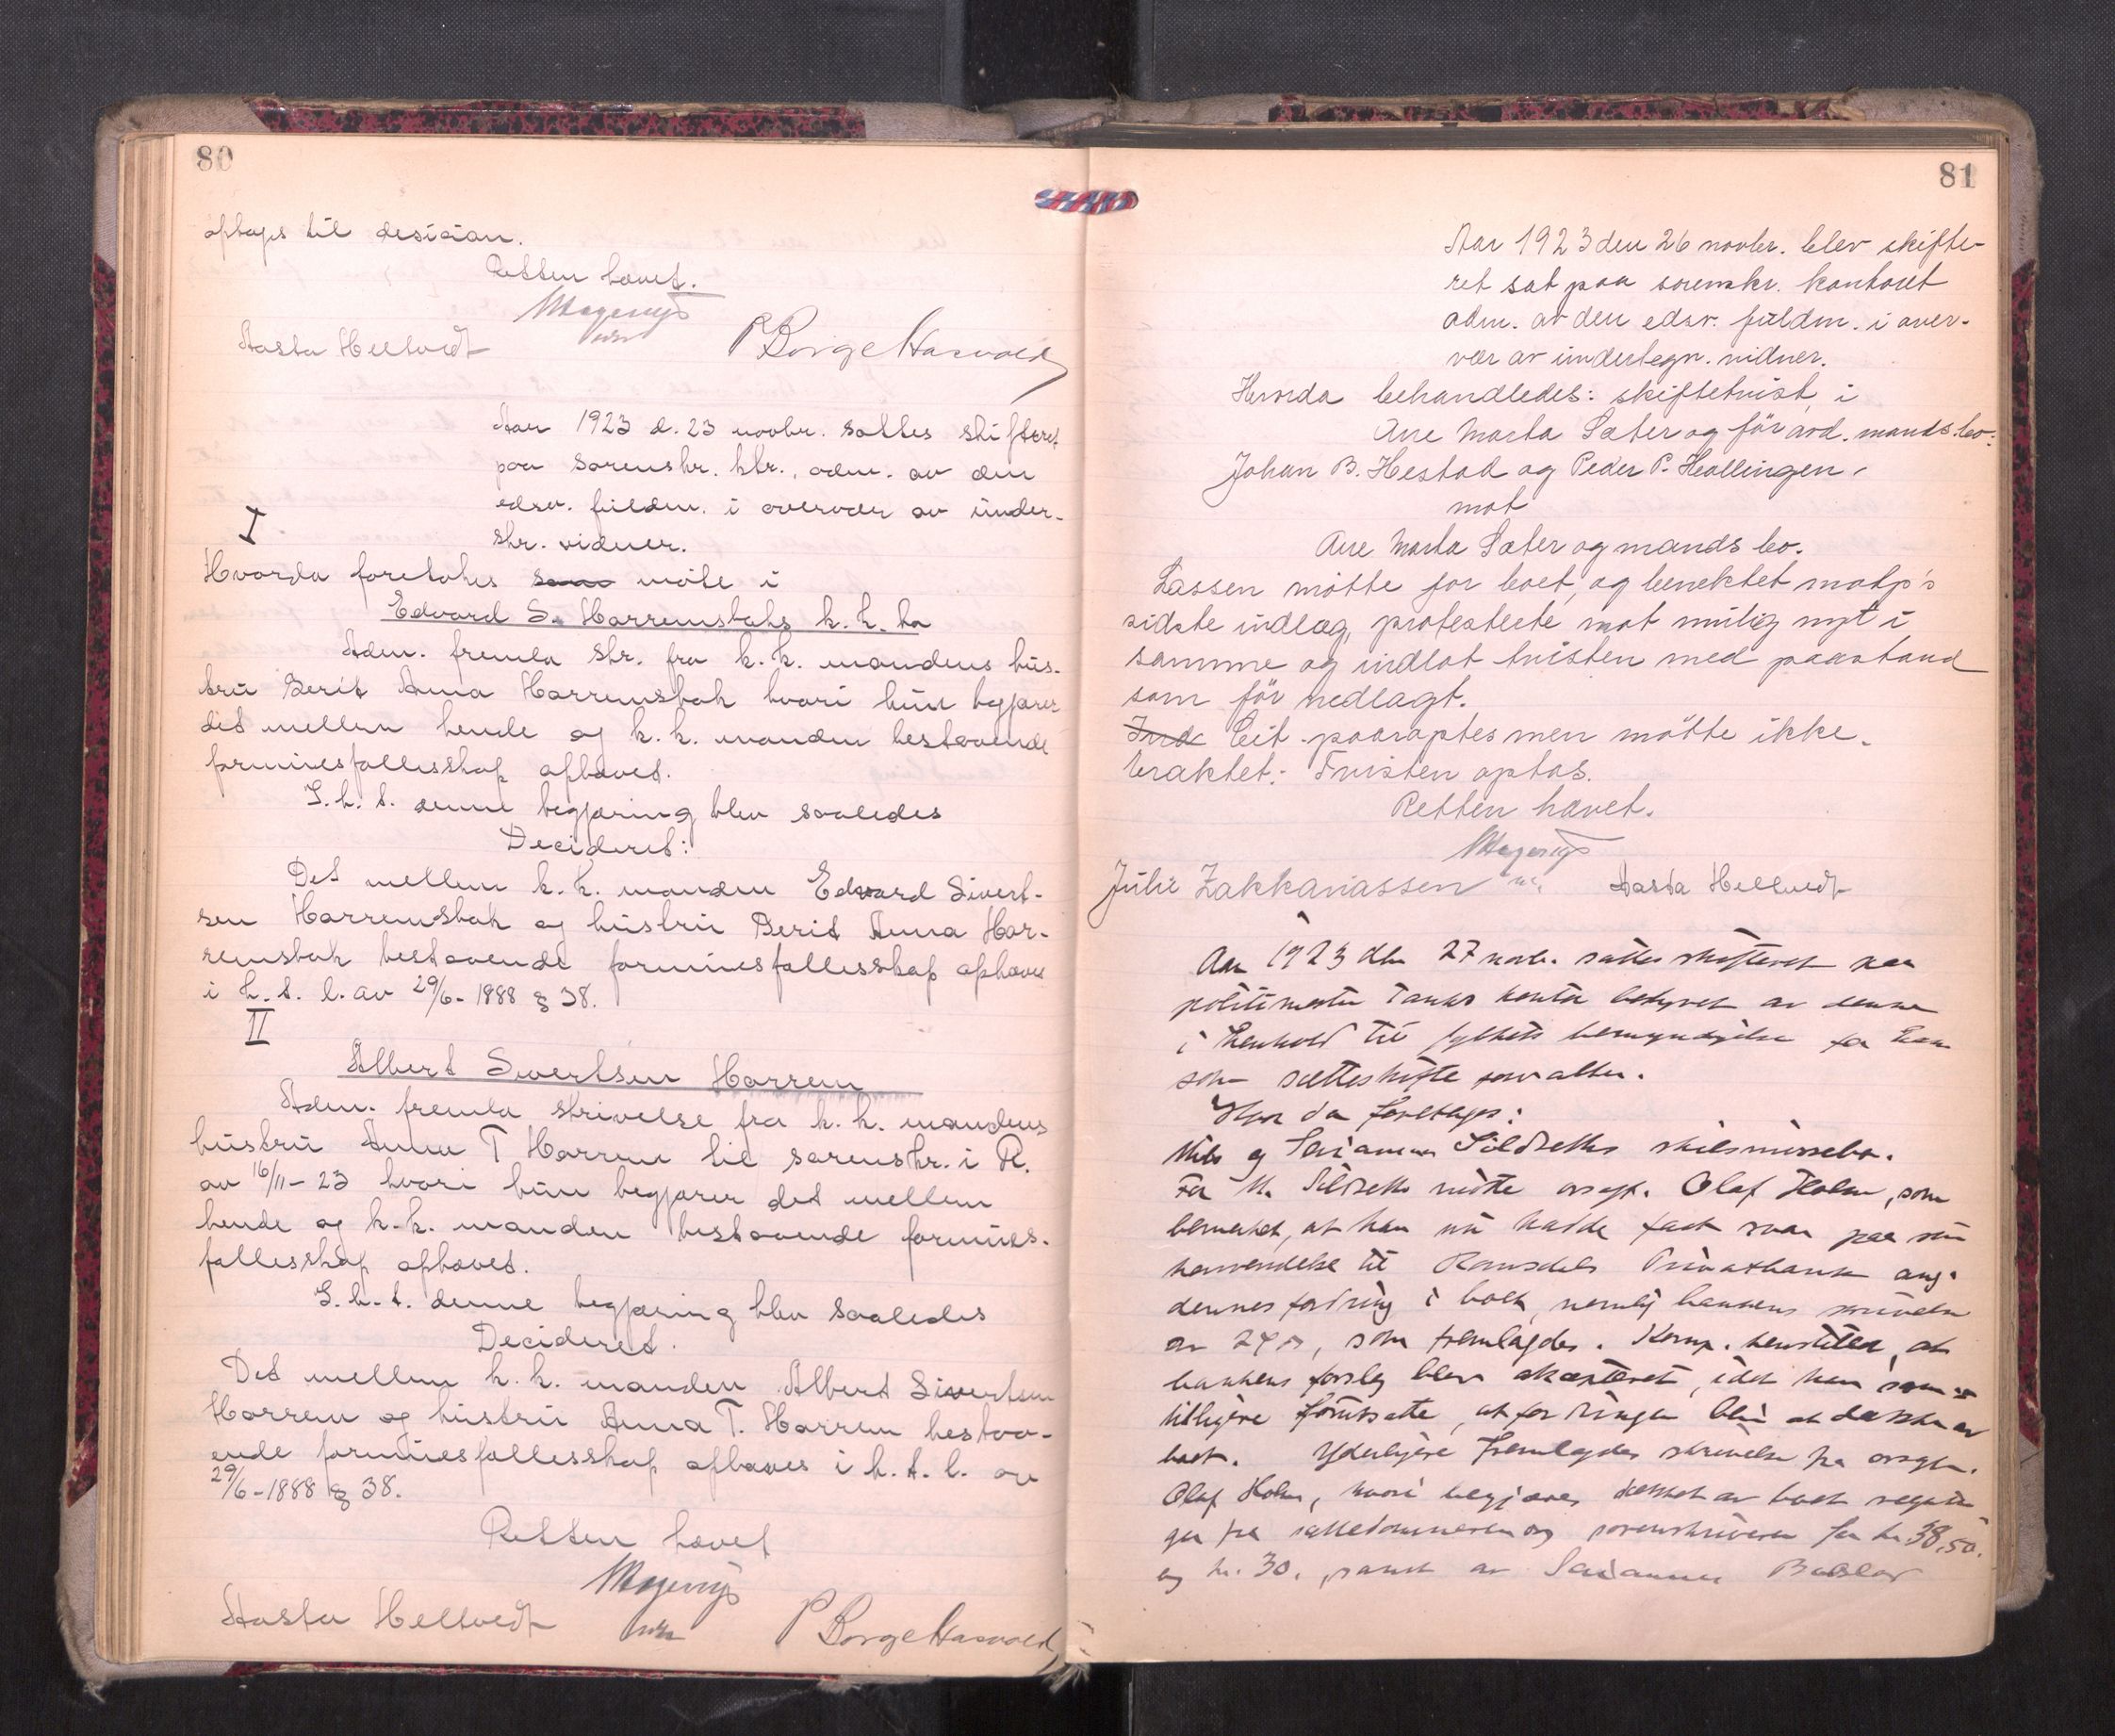 80
optages til desision.
Retten hævet.
Aasta Helltvedt P Borge Hasvold
Aar 1923 d. 23 novbr. sattes skifteret
paa sorenskr. ktr., adm. av den
edsv. fuldm. i overvær av under-
skr. vidner.
I
Hvorda foretokes møte i
Edvard S. Harremsbaks k. k. bo
Adm. fremla skr. fra k. k. mandens hus-
tru Berit Anna Harremsbak hvori hun begjærer
det mellem hende og k. k. manden bestaaende
formuesfællesskap ophævet.
I. h. t. denne begjæring blev saaledes
Decideret:
Det mellem k. k. manden Edvard Sivert-
sen Harremsbak og hustru Berit Anna Har-
remsbak bestaaende formuesfællesskap ophæves
i h. t. l. av 29/6-1888 § 38.
II
Albert Sivertsen Harrem
Adm. fremla skrivelse fra k. k. mandens
hustru Anna T Harrem til sorenskr. i R.
av 16/11-23 hvori hun begjærer det mellem
hende og k. k. manden bestaaende formues-
fællesskap ophævet.
I. h. t. denne begjæring blev saaledes
Decideret.
Det mellem k. k. manden Albert Sivertsen
Harrem og hustru Anna T. Harrem bestaa-
ende formuesfællesskap ophæves i h. t. l. av
29/6-1888 § 38.
Retten hævet
Aasta Helltvedt P Borge Hasvold
81
Aar 1923 den 26 novbr. blev skifte-
ret sat paa sorenskr. kontoret
adm. av den edsv. fuldm. i over-
vær av undertegn. vidner.
Hvorda behandledes: skiftetvist i
Ane Marta Sæter og før avd. mands bo:
Johan B. Hestad og Peder P. Hollingen,
mot
Ane Marta Sæter og mands bo.
Lassen møtte for boet, og benektet motp's
sidste indlæg, protesterte mot mulig nyt i
samme og indlot tvisten med paastand
som før nedlagt.
Eit paaraaptes men møtte ikke.
Eraktet: Tvisten optas.
Retten hævet.
Julie Zakkariassen Aasta Helltvedt
Aar 1923 den 27 novbr. sattes skifteret paa
politimester Tanks kontor bestyret av denne
i henhold til fylkets bemyndigelse for ham
som sætteskifteforvalter.
Hvor da foretages:
Nils og Susanna Sildseths skilsmissebo.
For N. Sildseth møtte orsagf. Olaf Holm, som
bemerket, at han nu hadde faat svar paa sin
henvendelse til Romsdals Privatbank ang.
dennes fordring i boet, nemlig bankens skrivelse
av 24 ds, som fremlagdes. Komp. henstiller, at
bankens forslag blev akcepteret, idet han sam-
tidligere forutsatte, at fordringen blir at dække av
boet. Yderligere fremlagdes skrivelse fra orsagf.
Olaf Holm, hvori begjæres dækket av boet regnin
ger fra sættedommeren og sorenskriveren for kr. 38,50.
og kr. 30, samt av Susanna